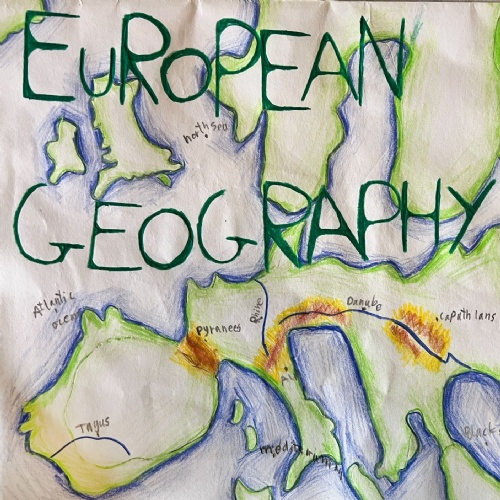 EuROPEAN
GEOGRAPHY
north sea
Atlantic
ocean
Rhine
Danube
Pyranees
capathians
Tagus
Black